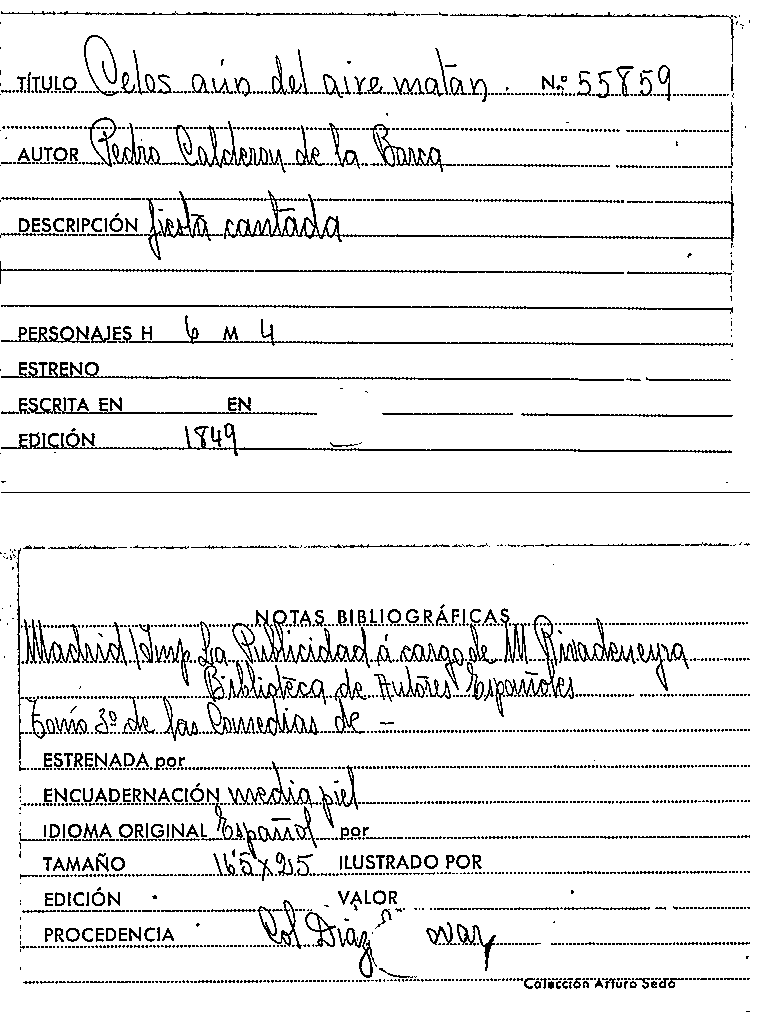 TÍTULO Celos aún del aire matan. N.º 55859
AUTOR Pedro Calderon de la Barca
DESCRIPCIÓN fiesta cantada
PERSONAJES H 6 M 4
ESTRENO
ESCRITA EN EN
EDICIÓN 1849
NOTAS BIBLIOGRÁFICAS
Madrid/Imp La Publicidad á cargo de M Rivadeneyra
Biblioteca de Autores Españoles
Tomo 3º de las Comedias de —
ESTRENADA por
ENCUADERNACIÓN media piel
IDIOMA ORIGINAL Español por
TAMAÑO 16'5 x 25 ILUSTRADO POR
EDICIÓN VALOR
PROCEDENCIA Col Díaz
Colección Arturo Sedó